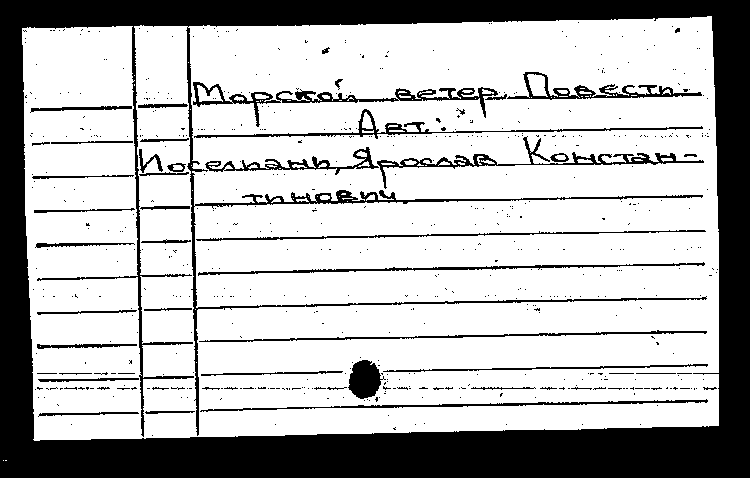 Морской ветер. Повесть.
Авт.:
Иоселиани, Ярослав Констан-
тинович.